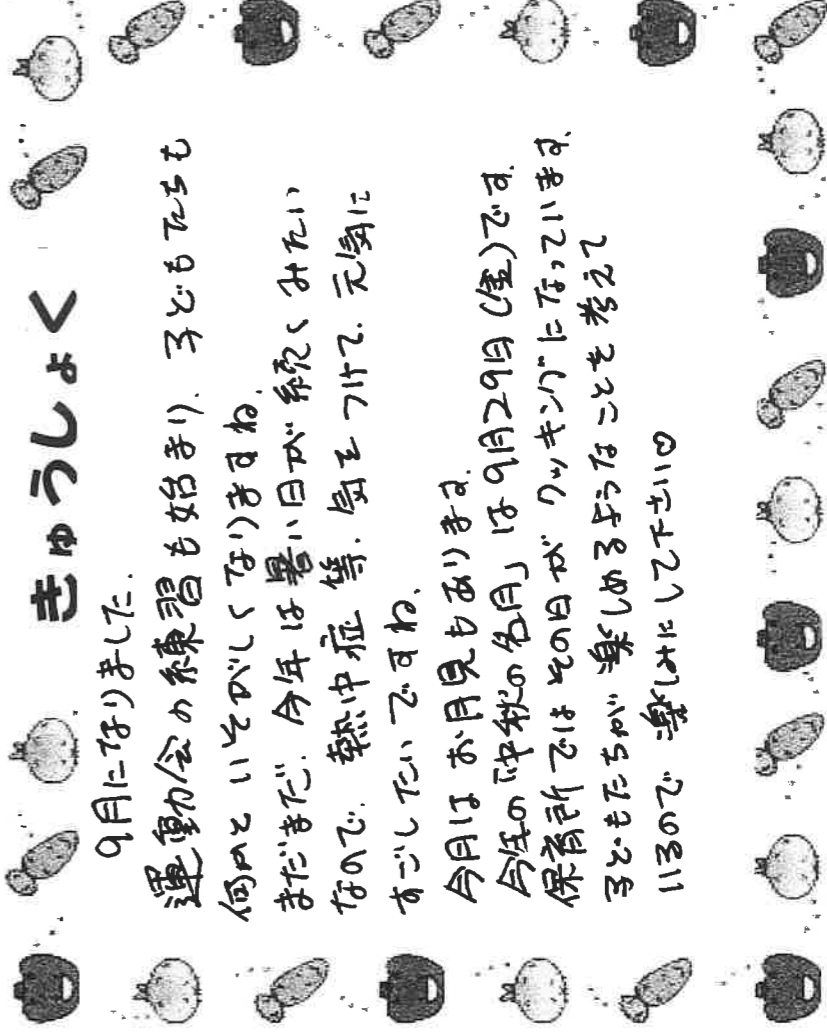 きゅうしょく
9月になりました.
運動会の練習も始まり. 子どもたちも
何かといそがしくなりますね.
まだまだ. 今年は暑い日が続くみたい
なので. 熱中症等. 気をつけて. 元気に
すごしたいですね.
今月はお月見もあります.
今年の「中秋の名月」は9月29日(金)です.
保育所ではその日がクッキングになっています.
子どもたちが楽しめるようなことを考えて
いるので楽しみにして下さい♡